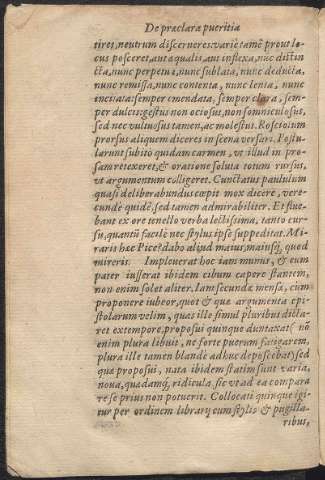 De praeclara pueritia
tires, neutrum discerneres: varie tamē prout lo-
cus posceret, aut aqualis, aut inflexa, nūc distin
cta, nunc perpetua, nunc sublata, nunc deducta,
nunc remissa, nunc contenta, nunc lenta, nunc
incitata: semper emendata, semper clara, sem-
per dulcis: gestus non ociosus, non somniculosus,
sed nec vultuosus tamen, ac molestus. Roscioium
prorsus aliquem diceres in scena versari. Postu-
larunt subito quidam carmen, vt illud in pro-
sam retexeret, & oratione soluta totum rursus,
vt argumentum colligeret. Cunctatus paululum
quasi deliberabundus cœpit mox dicere, vere-
cunde quidē, sed tamen admirabiliter. Et flue-
bant ex ore tenello verba lectissima, tanto cur-
su, quantū facilè nec stylus ipse suppeditat. Mi-
raris hæc Pice? dabo aliud maius, maiusq́, quod
mireris. Impleuerat hoc iam munus, & cum
pater iusserat ibidem cibum capere stantem,
non enim solet aliter. Iam secunde mensa, cum
proponere iubeor, quot & quæ argumenta epi-
stolarum velim, quas ille simul pluribus dicta-
ret extempore, proposui quinque duntaxat (nō
enim plura libuit, ne forte puerum fatigarem,
plura ille tamen blandè adhuc deposcebat) sed
quæ proposui, nata ibidem statim sunt varia,
noua, quadamq́, ridicula, sic vt ad ea compara
re se prius non potuerit. Collocati quinque igi-
tur per ordinem librarij cum stylis & pugilla-
ribus,